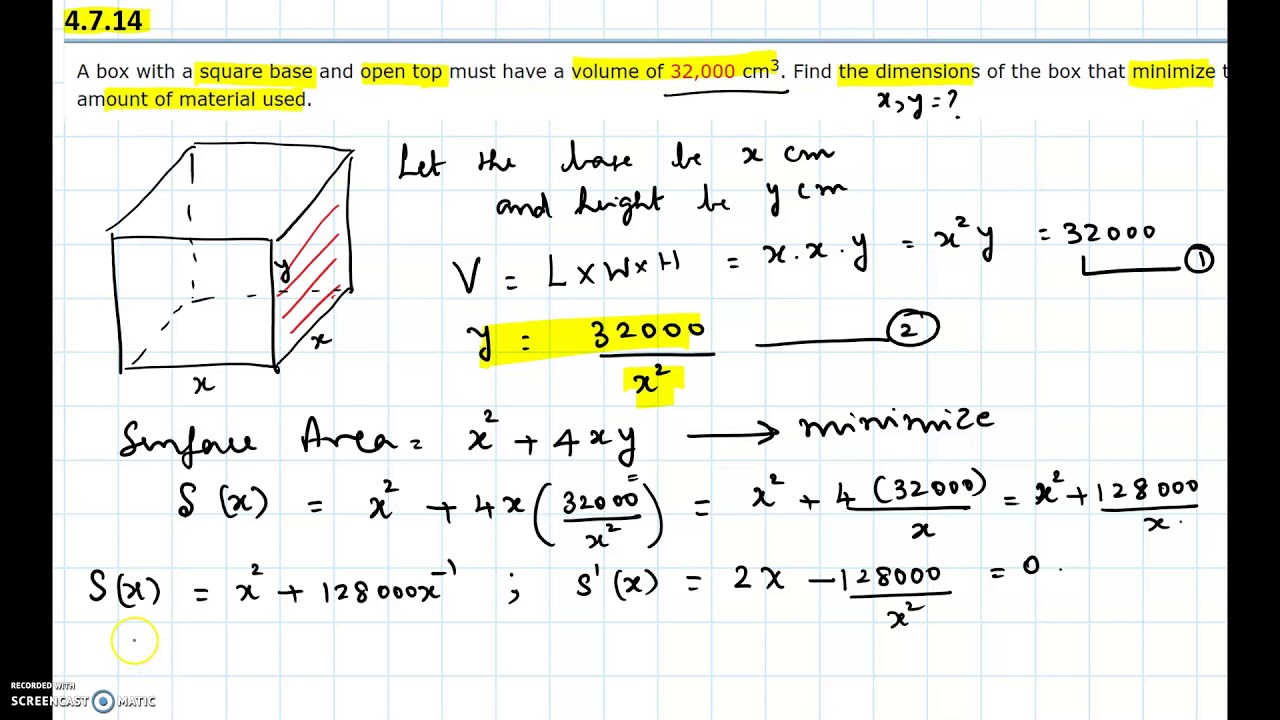 4.7.14
A box with a square base and open top must have a volume of 32,000 cm³. Find the dimensions of the box that minimize t
amount of material used.
x, y = ?
Let the base be x cm
and height be y cm
V = L × W × H = x . x . y = x² y = 32000 ①
y = 32000 / x² ②
y
x
x
Surface Area = x² + 4xy → minimize
S(x) = x² + 4x (32000 / x²) = x² + 4 (32000) / x = x² + 128000 / x.
S(x) = x² + 128000x⁻¹ ; S'(x) = 2x − 128000 / x² = 0 .
RECORDED WITH
SCREENCAST MATIC